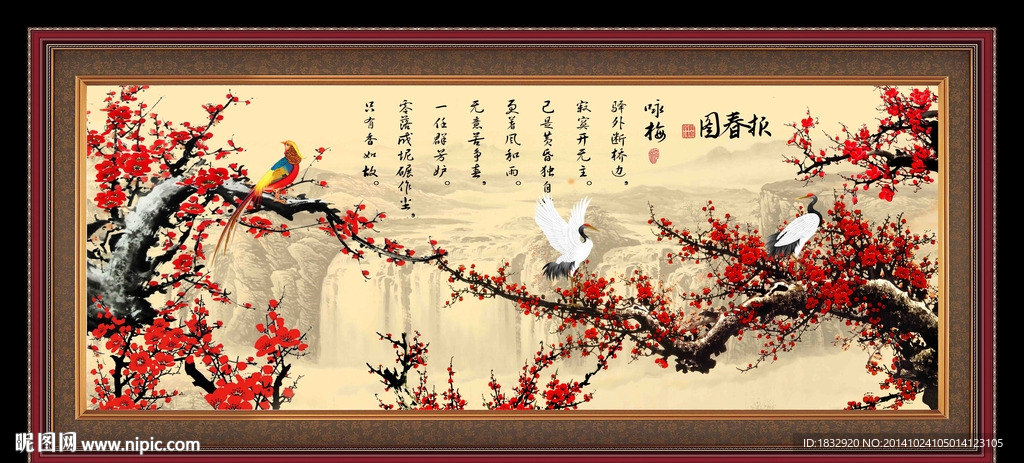 报春图
咏梅
驿外断桥边，
寂寞开无主。
已是黄昏独自
更着风和雨。
无意苦争春，
一任群芳妒。
零落成坭碾作尘，
只有香如故。
昵图网 www.nipic.com
ID:1832920 NO:20141024105014123105